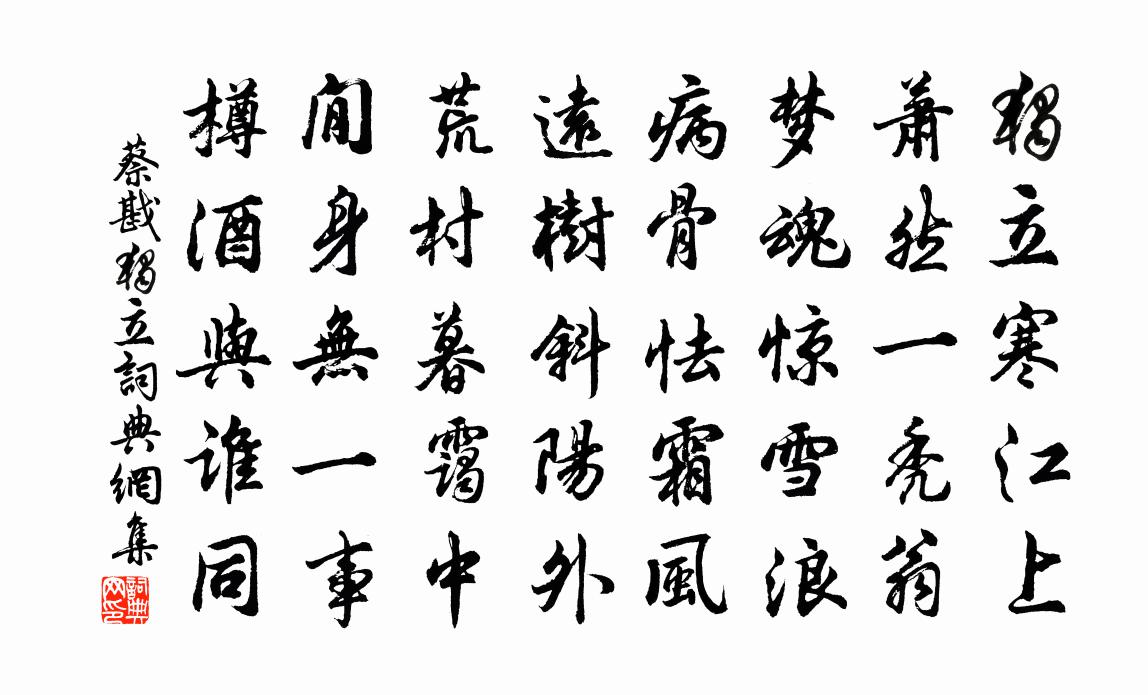 獨立寒江上
蕭然一禿翁
梦魂惊雪浪
病骨怯霜風
遠樹斜陽外
荒村暮靄中
閒身無一事
樽酒與誰同
蔡戡獨立詞典網集
詞典網印